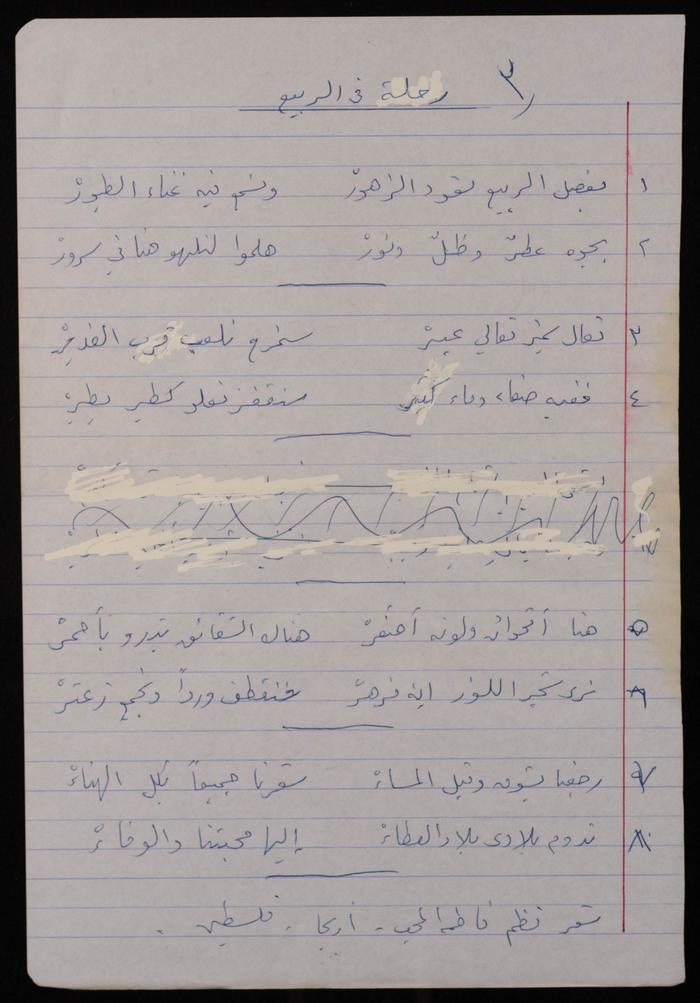 ٣) رحلة في الربيع
١ بفصل الربيع تعود الزهورْ ونسمع فيه غناء الطيورْ
٢ بجوه عطرٌ وظلٌ ونورْ هلموا لنلهو هنا في سرورْ
٣ تعال سمير تعالي عبيرْ سنمرح نلعب قرب الغديرْ
٤ ففيه صفاء وماء كثيرْ سنقفز نعلو كطير يطيرْ
٥ هنا أقحوان ولونه أصفرْ هناك الشقائق تبدو بأحمرْ
٦ نرى شجر اللوز إنه مزهرْ فنقطف ورداً ونجمع زعترْ
٧ رجعنا بشوق وقبل المساءْ سررنا جميعاً بكل الهناءْ
٨ تدوم بلادي بلاد العطاءْ إليها محبتنا والوفاءْ
شعر نظم فاطمة المحب - أريحا - فلسطين .